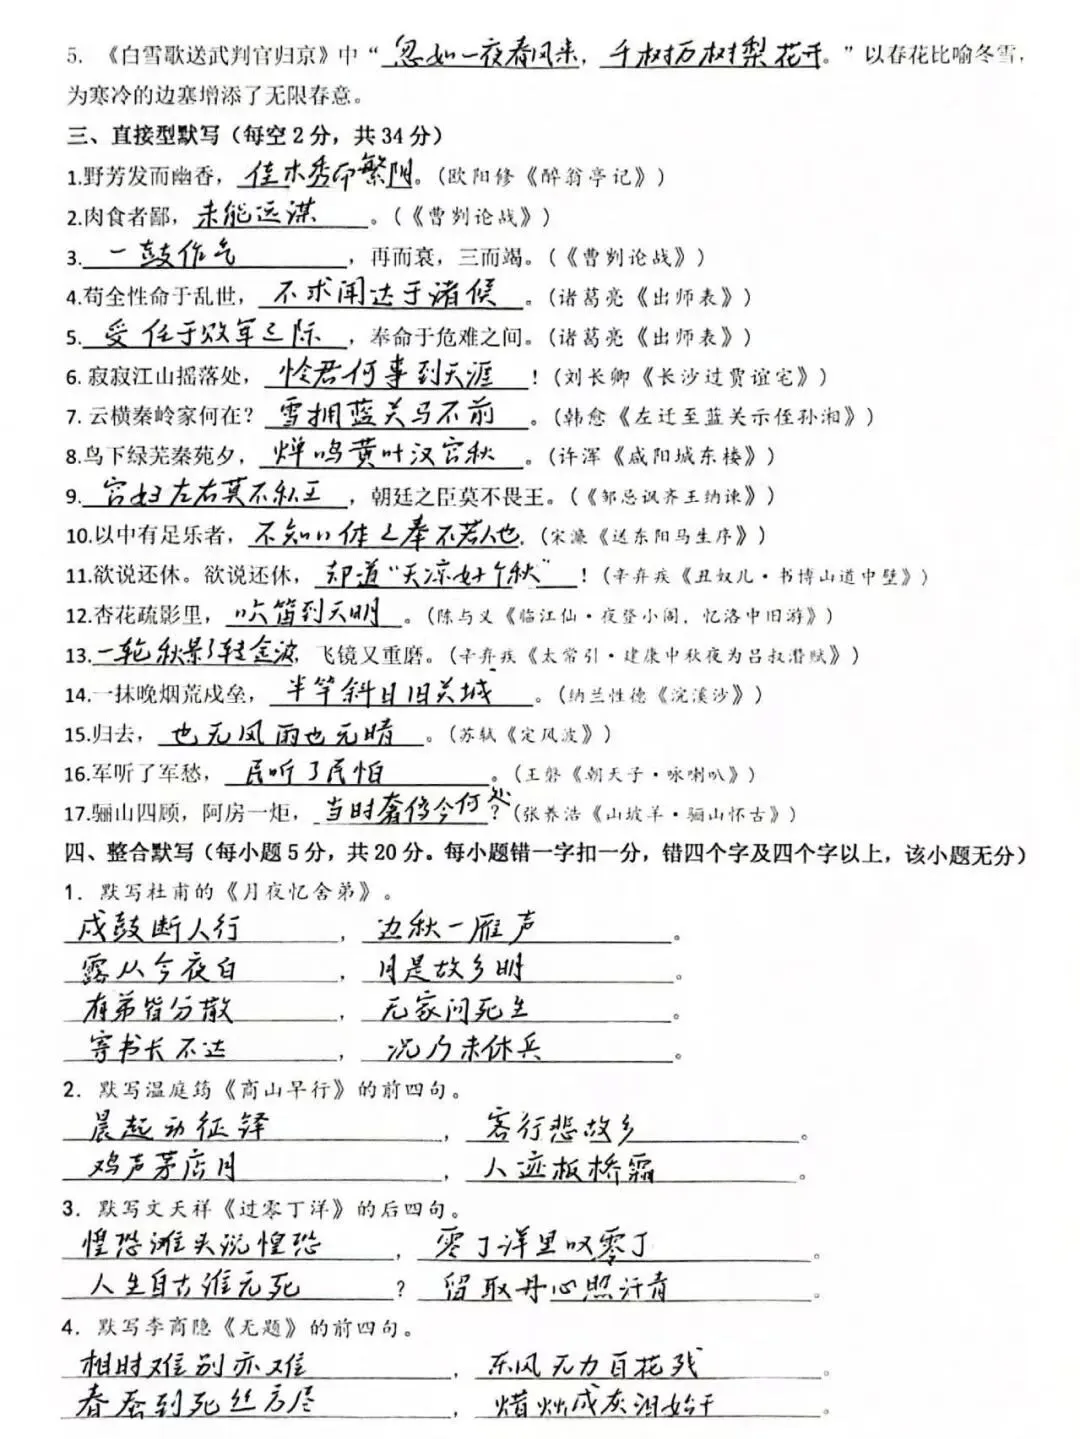 5. 《白雪歌送武判官归京》中“忽如一夜春风来，千树万树梨花开。”以春花比喻冬雪，
为寒冷的边塞增添了无限春意。
三、直接型默写（每空2分，共34分）
1.野芳发而幽香，佳木秀而繁阴。(欧阳修《醉翁亭记》)
2.肉食者鄙，未能远谋。(《曹刿论战》)
3.一鼓作气，再而衰，三而竭。(《曹刿论战》)
4.苟全性命于乱世，不求闻达于诸候。(诸葛亮《出师表》)
5.受任于败军之际，奉命于危难之间。(诸葛亮《出师表》)
6. 寂寂江山摇落处，怜君何事到天涯！(刘长卿《长沙过贾谊宅》)
7. 云横秦岭家何在？雪拥蓝关马不前。(韩愈《左迁至蓝关示侄孙湘》)
8.鸟下绿芜秦苑夕，蝉鸣黄叶汉宫秋。(许浑《咸阳城东楼》)
9. 宫妇左右莫不私王，朝廷之臣莫不畏王。(《邹忌讽齐王纳谏》)
10.以中有足乐者，不知口体之奉不若人也。(宋濂《送东阳马生序》)
11.欲说还休。欲说还休，却道“天凉好个秋”！(辛弃疾《丑奴儿·书博山道中壁》)
12.杏花疏影里，吹笛到天明。(陈与义《临江仙·夜登小阁，忆洛中旧游》)
13.一轮秋影转金波，飞镜又重磨。(辛弃疾《太常引·建康中秋夜为吕叔潜赋》)
14.一抹晚烟荒戍垒，半竿斜日旧关城。(纳兰性德《浣溪沙》)
15.归去，也无风雨也无晴。(苏轼《定风波》)
16.军听了军愁，民听了民怕。(王磐《朝天子·咏喇叭》)
17.骊山四顾，阿房一炬，当时奢侈今何处？(张养浩《山坡羊·骊山怀古》)
四、整合默写（每小题5分，共20分。每小题错一字扣一分，错四个字及四个字以上，该小题无分）
1. 默写杜甫的《月夜忆舍弟》。
戍鼓断人行，边秋一雁声。
露从今夜白，月是故乡明。
有弟皆分散，无家问死生。
寄书长不达，况乃未休兵。
2. 默写温庭筠《商山早行》的前四句。
晨起动征铎，客行悲故乡。
鸡声茅店月，人迹板桥霜。
3. 默写文天祥《过零丁洋》的后四句。
惶恐滩头说惶恐，零丁洋里叹零丁。
人生自古谁无死？留取丹心照汗青。
4. 默写李商隐《无题》的前四句。
相时难别亦难，东风无力百花残。
春蚕到死丝方尽，蜡炬成灰泪始干。